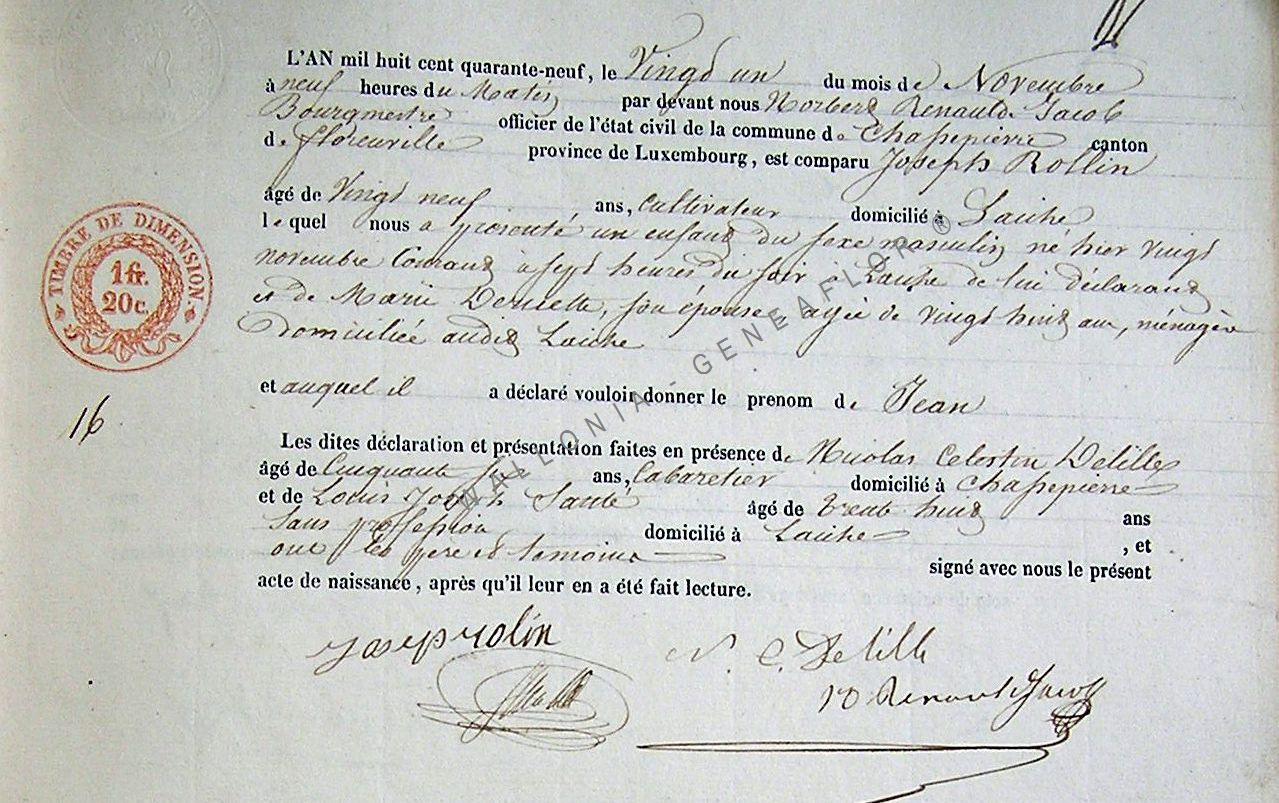 L'AN mil huit cent quarante-neuf, le Vingt un du mois de Novembre
à neuf heures du Matin par devant nous Norbert Renauld Jacob
Bourgmestre officier de l'état civil de la commune de Chassepierre canton
de florenville province de Luxembourg, est comparu Joseph Rollin
âgé de Vingt neuf ans, Cultivateur domicilié à Laiche
lequel nous a présenté un enfant du sexe masculin né hier vingt
novembre Courant à sept heures du soir à Laiche de lui déclarant
et de Marie son épouse, agée de vingt huit ans, ménagère
domiciliée audit Laiche
et auquel il a déclaré vouloir donner le prenom de Jean
16
Les dites déclaration et présentation faites en présence de Nicolas Celestin Delille
âgé de Cinquante ans, Cabaretier domicilié à Chassepierre
et de Louis Joseph âgé de trente huit ans
Sans profession domicilié à Laiche , et
ont les père et temoins signé avec nous le présent
acte de naissance, après qu'il leur en a été fait lecture.
Josep rolin
N. C. Delille
Renauld Jacob
TIMBRE DE DIMENSION
1 fr.
20 c.
WALLONIA GENEAFLOR ®